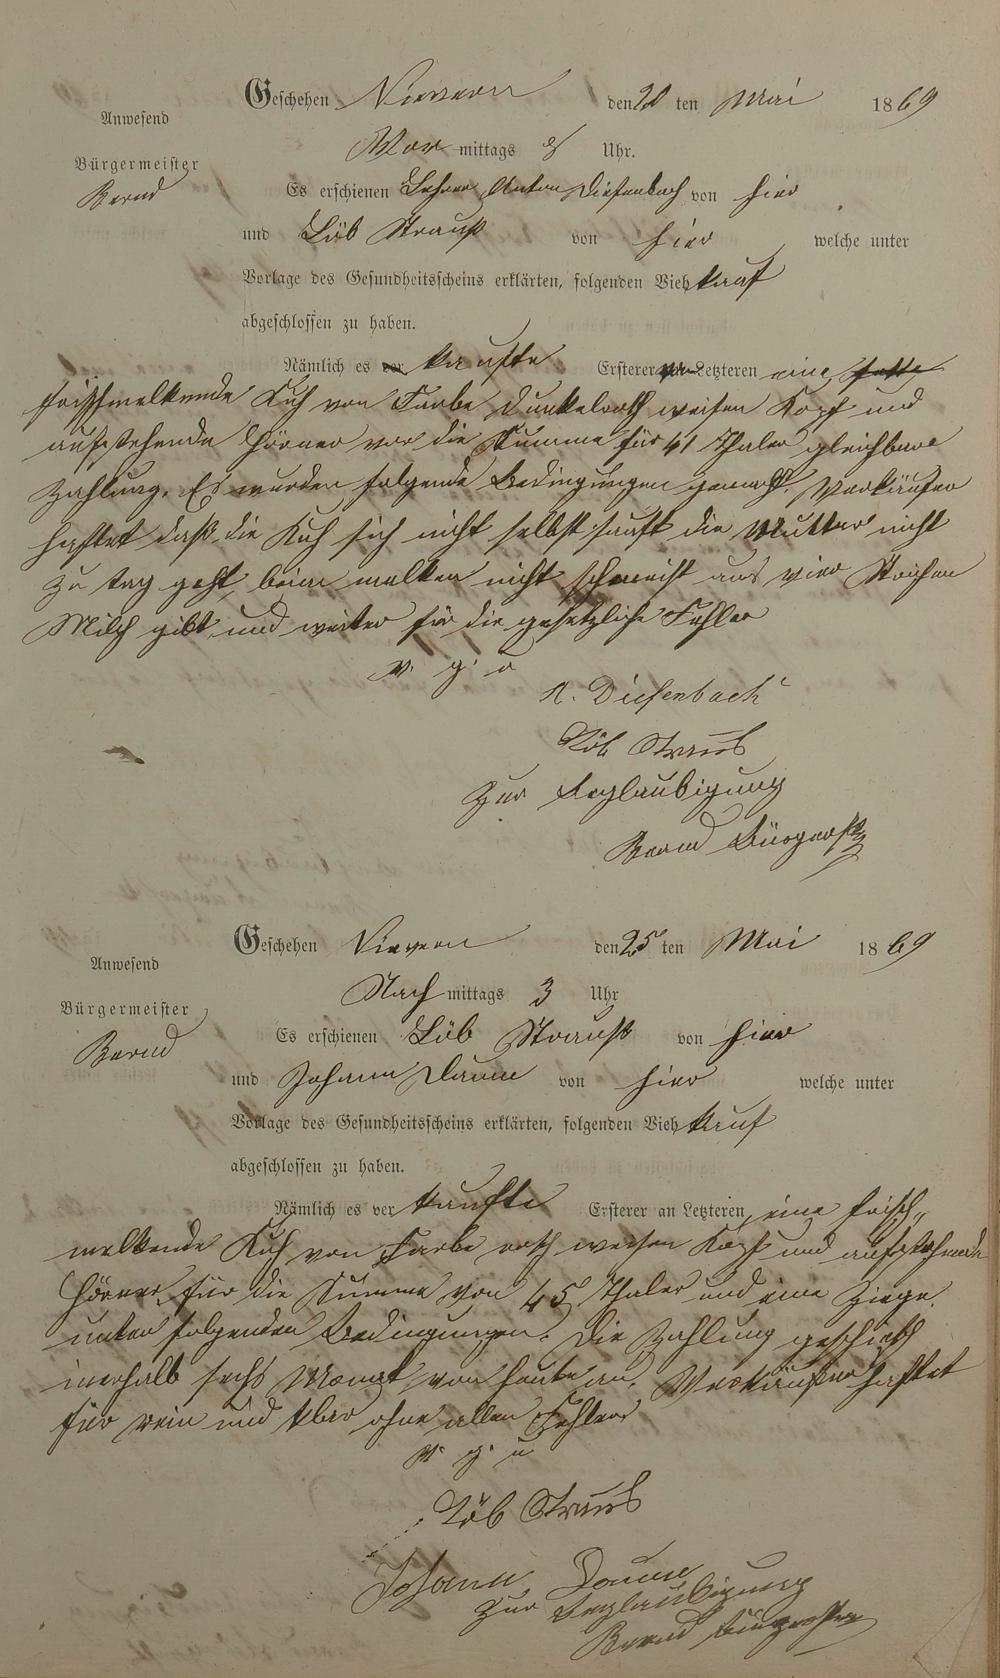 Geschehen Nievern den 20 ten Mai 1869
Anwesend
Vor mittags 8 Uhr.
Bürgermeister
Bernd
Es erschienen Lehrer Anton Diefenbach von hier
und Löb Strauß von hier welche unter
Vorlage des Gesundheitsscheins erklärten, folgenden Vieh kauf
abgeschlossen zu haben.
Nämlich es ver kaufte Ersterer an Letzteren eine fette
frischmelkende Kuh von Farbe dunkelroth weisen Kopf und
aufstehende Hörner vor die Summe für 41 Thaler gleichbare
Zahlung. Es wurden folgende Bedingungen gemacht. Verkäufer
haftet daß die Kuh sich nicht selbst sauft die Mutter nicht
zu tag geht, beim melken nicht schmeist aus vier Strichen
Milch gibt und weiter für die gesetzliche Fehler
v. g. u
A. Diefenbach
Löb Straus
Zur Beglaubigung
Bernd Bürgerstr
Geschehen Nievern den 25 ten Mai 1869
Anwesend
Nach mittags 3 Uhr
Bürgermeister
Bernd
Es erschienen Löb Strauß von hier
und Johann Daum von hier welche unter
Vorlage des Gesundheitsscheins erklärten, folgenden Vieh kauf
abgeschlossen zu haben.
Nämlich es ver kaufte Ersterer an Letzteren eine frisch„
melkende Kuh von Farbe roth weisen Kopf und aufstehende
Hörner, für die Summe von 45 Thaler und eine Ziege.
unter folgenden Bedingungen. Die Zahlung geschieht
inerhalb sechs Monat von heute an. Verkäufer haftet
für rein und klar ohne allen Fehler
v. g. u
Löb Straus
Johann Daum
Zur Beglaubigung
Bernd Bürgerstr